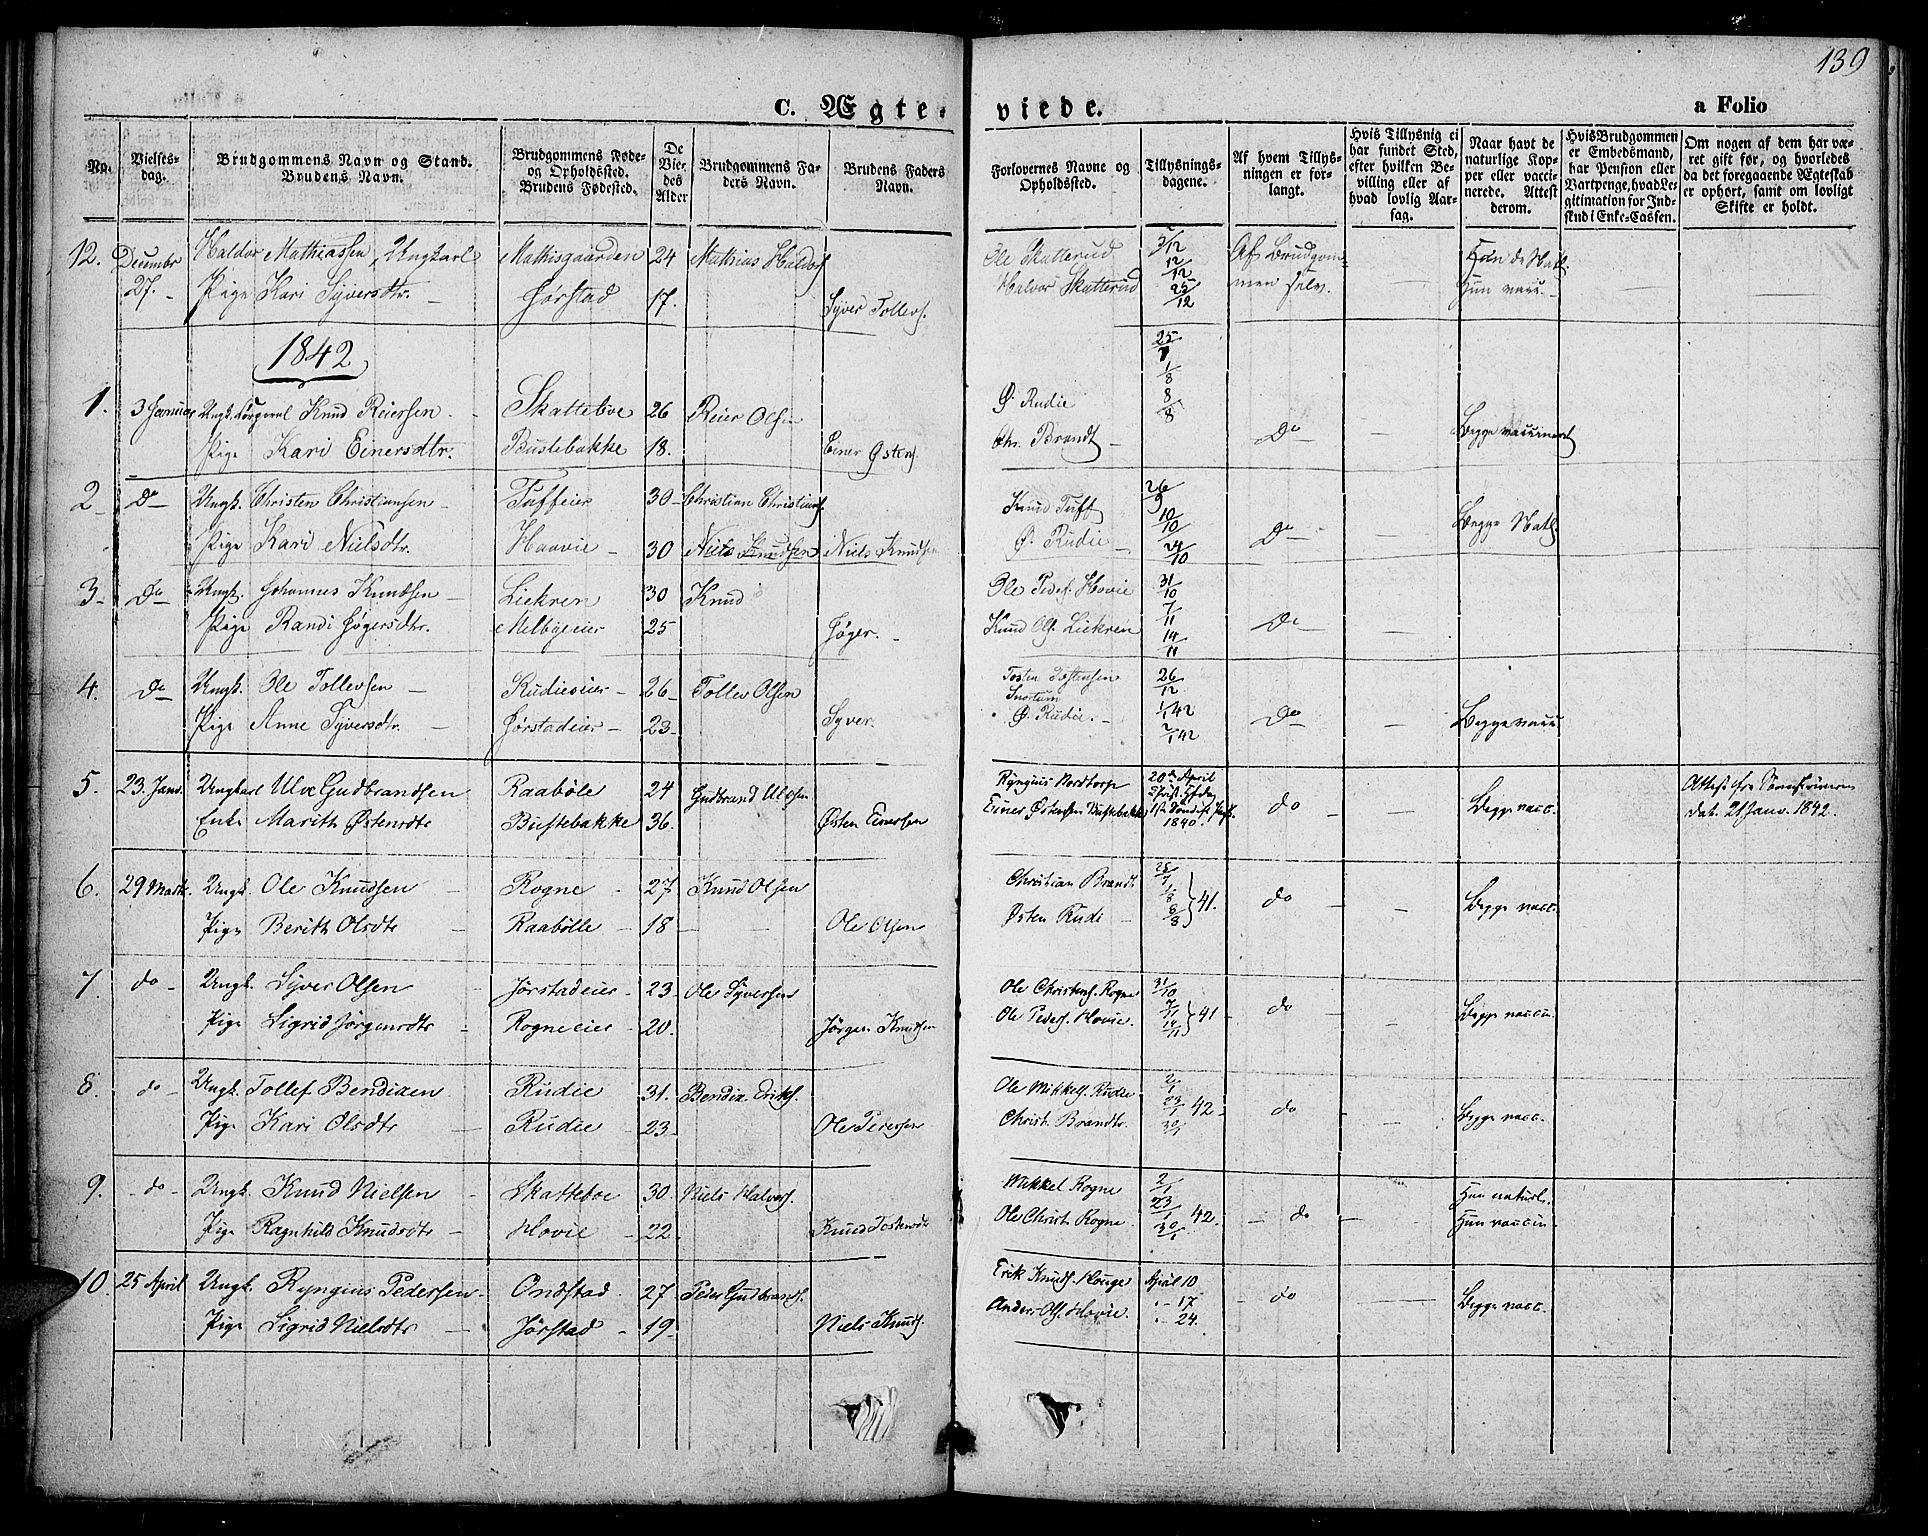 139
C. Ægte- viede.
a Folio
No.
Vielses-
dag.
Brudgommens Navn og Stand.
Brudens Navn.
Brudgommens Føde-
og Opholdssted.
Brudens Fødested.
De
Vie-
des
Alder
Brudgommens Fa-
ders Navn.
Brudens Faders
Navn.
Forlovernes Navne og
Opholdssted.
Tillysnings-
dagene.
Af hvem Tillys-
ningen er for-
langt.
Hvis Tillysnig ei
har fundet Sted,
efter hvilken Be-
villing eller af
hvad lovlig Aar-
sag.
Naar havt de
naturlige Kop-
per eller vacci-
nerede. Attest
derom.
Hvis Brudgommen
er Embedsmand,
har Pension eller
Vartpenge, hvad Le-
gitimation for Ind-
skud i Enke-Cassen.
Om nogen af dem har væ-
ret gift før, og hvorledes
da det foregaaende Ægteskab
er ophort, samt om lovligt
Skifte er holdt.
12. Decembr Haldor Mathiassen, Ungkarl Mathisgaarden 24 Mathias Haldors Ole Skatterud 5/12 12/12 25/12 Af Brudgom-
27. Pige Kari Syversdtr. Jørstad 17. Syver Tollevs. Halvor Skatterud men selv. Hun vacc.
1842
1. 3 Januar Ungk. Knud Reiersen Skattebøe 26 Reier Olsen Ø. Rudie 25/7 1/8 8/8
Pige Kari Einersdtr. Bustebakke 18. Einer Østens. Chr. Brandt Do Begge vaccineret
2 Do Ungk. Christen Christiansen Tuffeier 30 Christian Christians Knud Tuff 26/9 10/10 24/10
Pige Kari Nielsdtr. Haavie 30 Niels Knudsen Niels Knudsen Ø. Rudie Do Begge Natl.
3 Do Ungk. Johannes Knudsen Liekren 30 Knud Ole Peders. Hovie 31/10 7/11 14/11
Pige Randi Jøgersdtr. Melbyeeier 25 Jøger. Knud Ols. Liekren Do
4. Do Ungk. Ole Tollevsen Rudieeier 26 Tollev Olsen Tosten Tostensen 26/12
Snortum
Pige Anne Syversdtr. Jørstadeier 23 Syver. Ø. Rudie. 1/1 42 2/1 42 Do Begge vacc
5. 23. Janv. Ungkarl Ulve Gudbrandsen Raabøle 24 Gudbrand Ulvsen Ryngius Nordtorp 20de April
Enke Marith Østensdtr Bustebakke 36. Østen Einersen Einer Østensen Bustebakke 1840. do Begge vacc. dat. 21 Janv. 1842.
6. 29 Marts. Ungk. Ole Knudsen Rogne 27 Knud Olsen Christian Brandt 25/7 1/8 8/8 } 41. do
Pige Berith Olsdtr Raabølle 18 Ole Olsen Østen Rudi Begge vacc.
7. do Ungk. Syver Olsen Jørstadeier 23 Ole Syversen Ole Christens. Rogne 31/10 7/11 14/11 } 41 do
Pige Sigrid Jørgensdtr Rogneeier 20. Jørgen Knudsen Ole Peders. Hovie. Begge vaccin.
8. do Ungk. Tollef Bendixen Rudie 31. Bendix Eriks. Ole Mikkels. Rudie 2/1 23/1 30/1 42 do
Pige Kari Olsdtr Rudie 23 Ole Pedersen Christ. Brandtr. Begge vacc.
9. do Ungk. Knud Nielsen Skattebøe 30. Niels Halvors. Mikkel Rogne 2/1 23/1 30/1 42. do Han naturl.
Pige Ragnhild Knudsdtr Hovie 22 Knud Tostensdtr Ole Christ. Rogne. Hun vaccin
10. 25 April Ungk. Ryngius Pedersen Ondstad 27 Peder Gudbrands. Erik Knuds. Houge April 10
Pige Sigrid Nielsdtr Jørstad 19 Niels Knuds. Anders Ols. Hovie. 17 24. do Begge vacc.